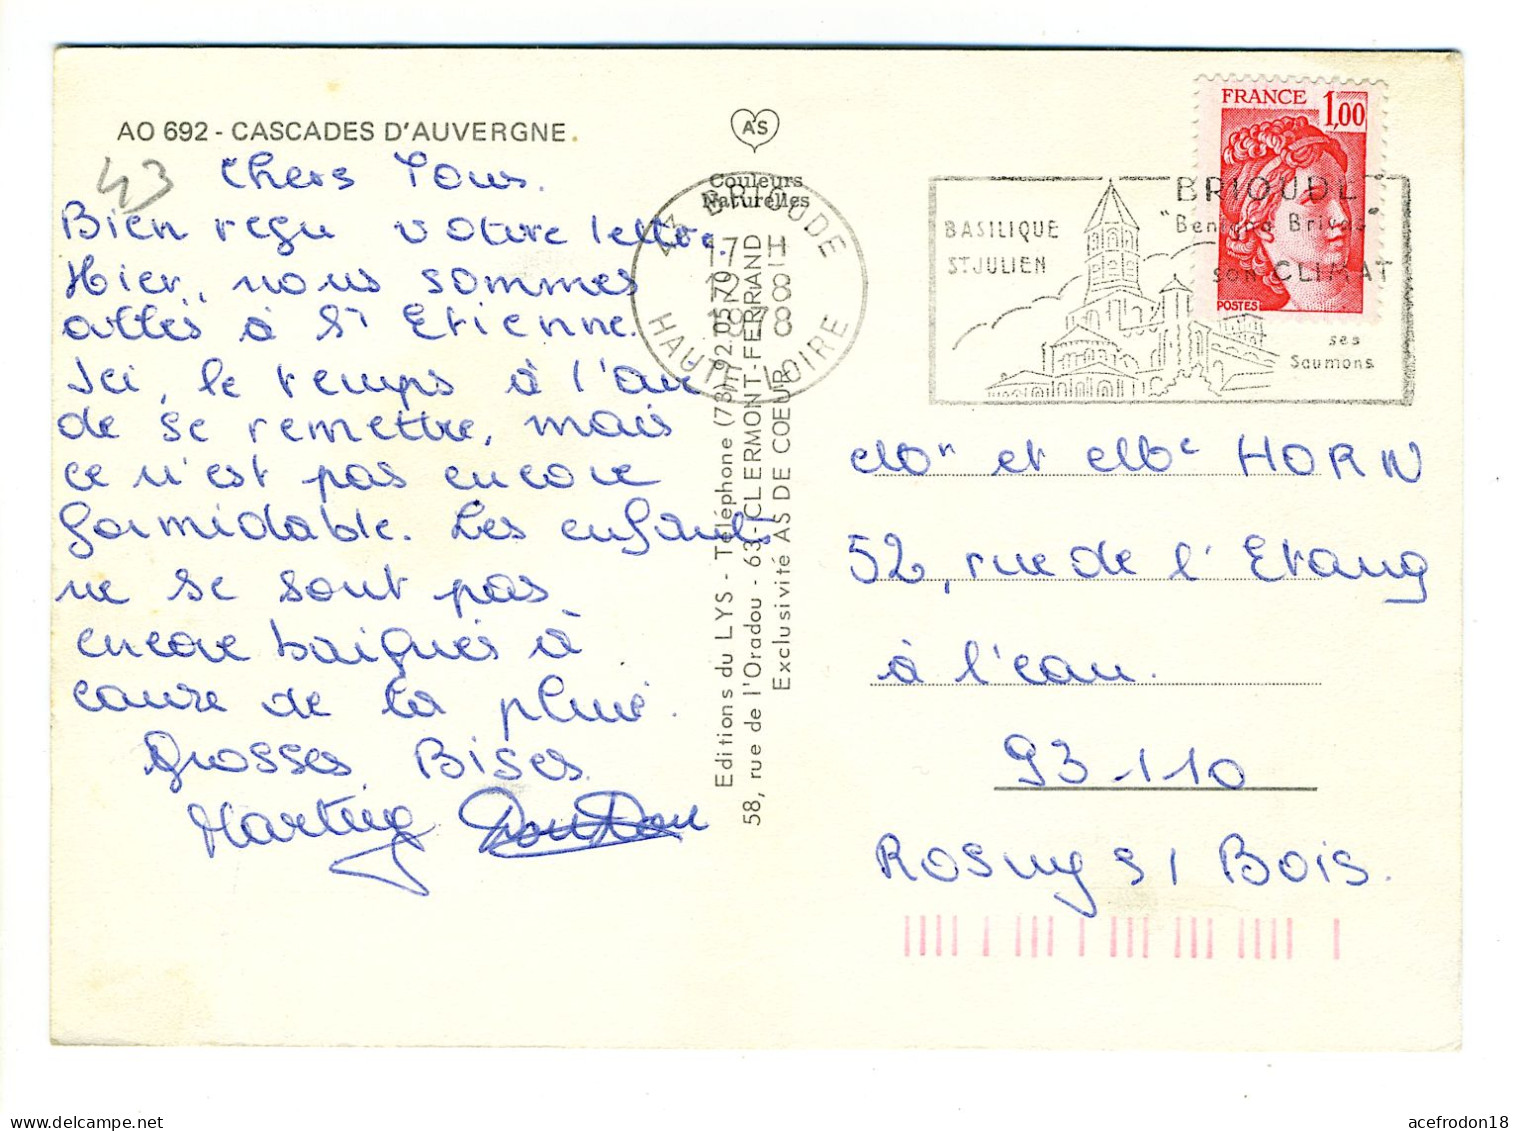 AO 692 - CASCADES D'AUVERGNE.
43
Chers Tous.
Bien reçu votre lettre.
Hier, nous sommes
allés à St Etienne.
Ici, le temps à l'air
de se remettre, mais
ce n'est pas encore
formidable. Les enfants
ne se sont pas
encore baignés à
cause de la pluie.
Grosses Bises.
AS
Couleurs
Naturelles
43 BRIOUDE
17 H
12-8
1978
HAUTE LOIRE
Editions du LYS - Téléphone (73) 92.05.70
58, rue de l'Oradou - 63-CLERMONT-FERRAND
Exclusivité AS DE COEUR
BASILIQUE
ST JULIEN
BRIOUDE
son CLIMAT
ses
Saumons
FRANCE 1,00
POSTES
Mor et Mme HORN
52, rue de l'Etang
à l'eau.
93110
Rosny s/ Bois.
acefrodon18